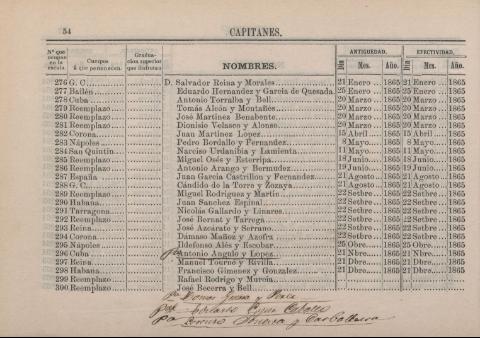 54
CAPITANES.
Nº que ocupan en la escala.
Cuerpos á que pertenecen.
Graduacion superior que disfrutan
NOMBRES.
ANTIGÜEDAD.
EFECTIVIDAD.
Día Mes. Año. Día Mes. Año.
276 G. C. D. Salvador Reina y Morales 21 Enero 1865 21 Enero 1865
277 Bailén Eduardo Hernandez y García de Quesada 25 Enero 1865 25 Enero 1865
278 Cuba Antonio Torralba y Bell 20 Marzo 1865 20 Marzo 1865
279 Reemplazo Tomás Alcón y Montañés 20 Marzo 1865 20 Marzo 1865
280 Reemplazo José Martinez Benabente 20 Marzo 1865 20 Marzo 1865
281 Reemplazo Dionisio Velasco y Alonso 20 Marzo 1865 20 Marzo 1865
282 Corona Juan Martinez Lopez 15 Abril 1865 15 Abril 1865
283 Nápoles Pedro Bordallo y Fernandez 8 Mayo 1865 8 Mayo 1865
284 San Quintin Narciso Urdanibia y Lamienta 11 Mayo 1865 11 Mayo 1865
285 Reemplazo Miguel Osés y Esterripa 18 Junio 1865 18 Junio 1865
286 Reemplazo Antonio Arango y Bermudez 19 Junio 1865 19 Junio 1865
287 España Juan García Castrillon y Fernandez 21 Agosto 1865 21 Agosto 1865
288 G. C. Cándido de la Torre y Zozaya 21 Agosto 1865 21 Agosto 1865
289 Reemplazo Miguel Rodriguez y Martin 22 Setbre 1865 22 Setbre 1865
290 Habana Juan Sanchez Espinal 22 Setbre 1865 22 Setbre 1865
291 Tarragona Nicolás Gallardo y Linares 22 Setbre 1865 22 Setbre 1865
292 Reemplazo José Bernat y Tarrega 22 Setbre 1865 22 Setbre 1865
293 Reina José Azcárate y Serrano 22 Setbre 1865 22 Setbre 1865
294 Corona Dámaso Muñoz y Azofra 22 Setbre 1865 22 Setbre 1865
295 Nápoles Ildefonso Alés y Escobar 25 Obre 1865 25 Obre 1865
296 Cuba Antonio Angulo y Lopez 21 Nbre 1865 21 Nbre 1865
297 Reina Manuel Tourné y Rivilla 21 Dbre 1865 21 Dbre 1865
298 Habana Francisco Gimenez y Gonzalez 21 Dbre 1865 21 Dbre 1865
299 Reemplazo Rafael Rodrigo y Murcia
300 Reemplazo José Becerra y Bell